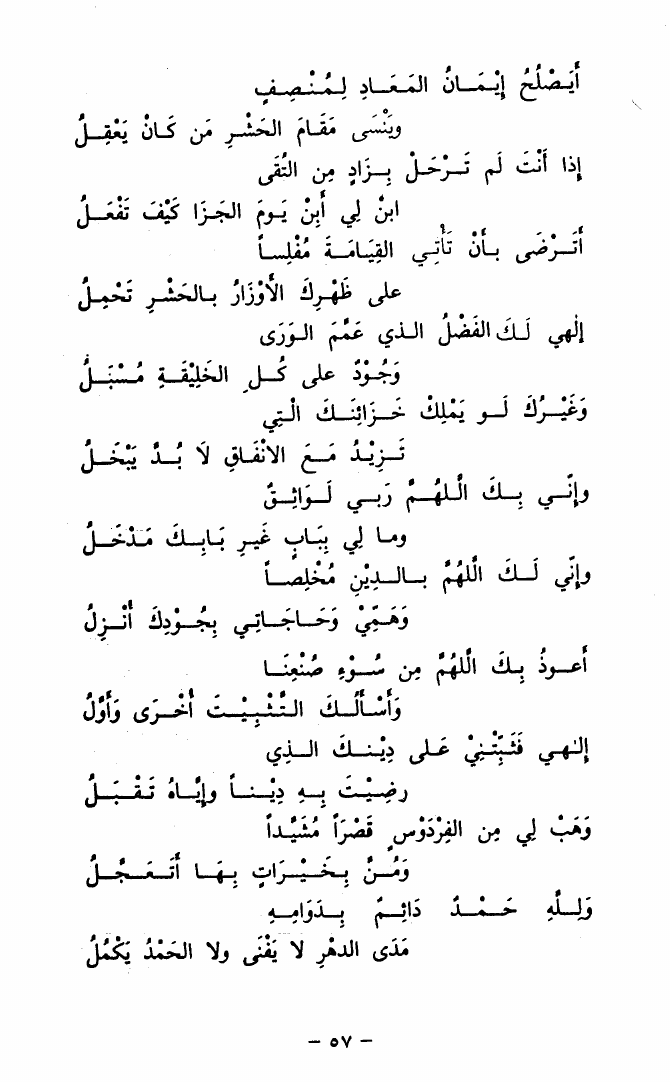 أَيَصْلُحُ إِيْمَانُ المَعَادِ لِمُنْصِفٍ
وَيَنْسَى مَقَامَ الحَشْرِ مَن كَانَ يَعْقِلُ
إذا أنْتَ لَم تَرْحَلْ بِزَادٍ مِن التُقَى
ابنْ لِي أَبِنْ يَومَ الجَزَا كَيْفَ تَفْعَلُ
أَتَرْضَى بأَنْ تَأْتِي القِيَامَةَ مُفْلِساً
على ظَهْرِكَ الأَوْزَارُ بالحَشْرِ تَحْمِلُ
إلٰهي لَكَ الفَضْلُ الذي عَمَّمَ الوَرَى
وَجُوْدٌ على كُلِ الخَلِيْقَةِ مُسْبَلُ
وَغَيْرُكَ لَو يَمْلِكْ خَزَائِنَكَ الْتِي
تَزِيْدُ مَعَ الانْفَاقِ لاَ بُدَّ يَبْخَلُ
وإنِّي بِكَ الْلهُمَّ رَبي لَوَاثِقٌ
وما لِي بِبَابٍ غَيرِ بَابِكَ مَدْخَلُ
وإنِّي لَكَ الْلهُمَّ بالدِيْنِ مُخْلِصاً
وَهَمِّيْ وَحَاجَاتِي بِجُوْدِكَ أَنْزِلُ
أعوذُ بِكَ الْلهُمَّ مِن سُوْءِ صُنْعِنَا
وَأَسْأَلُكَ التَّثْبِيْتَ أُخْرَى وَأَوَّلُ
إلٰهي فَثَبِّتْنِيْ عَلى دِيْنِكَ الذِي
رضِيْتَ بِهِ دِيْناً وإيَّاهُ تَقْبَلُ
وَهَبْ لِي مِن الفِرْدَوْسِ قَصْرَاً مُشَيَّداً
وَمُنَّ بِخَيْرَاتٍ بِهَا أَتَعَجَّلُ
وَلِلَّهِ حَمْدٌ دَائِمٌ بِدَوَامِهِ
مَدَى الدهْرِ لا يَفْنَى ولا الحَمْدُ يَكْمُلُ
– ٥٧ –